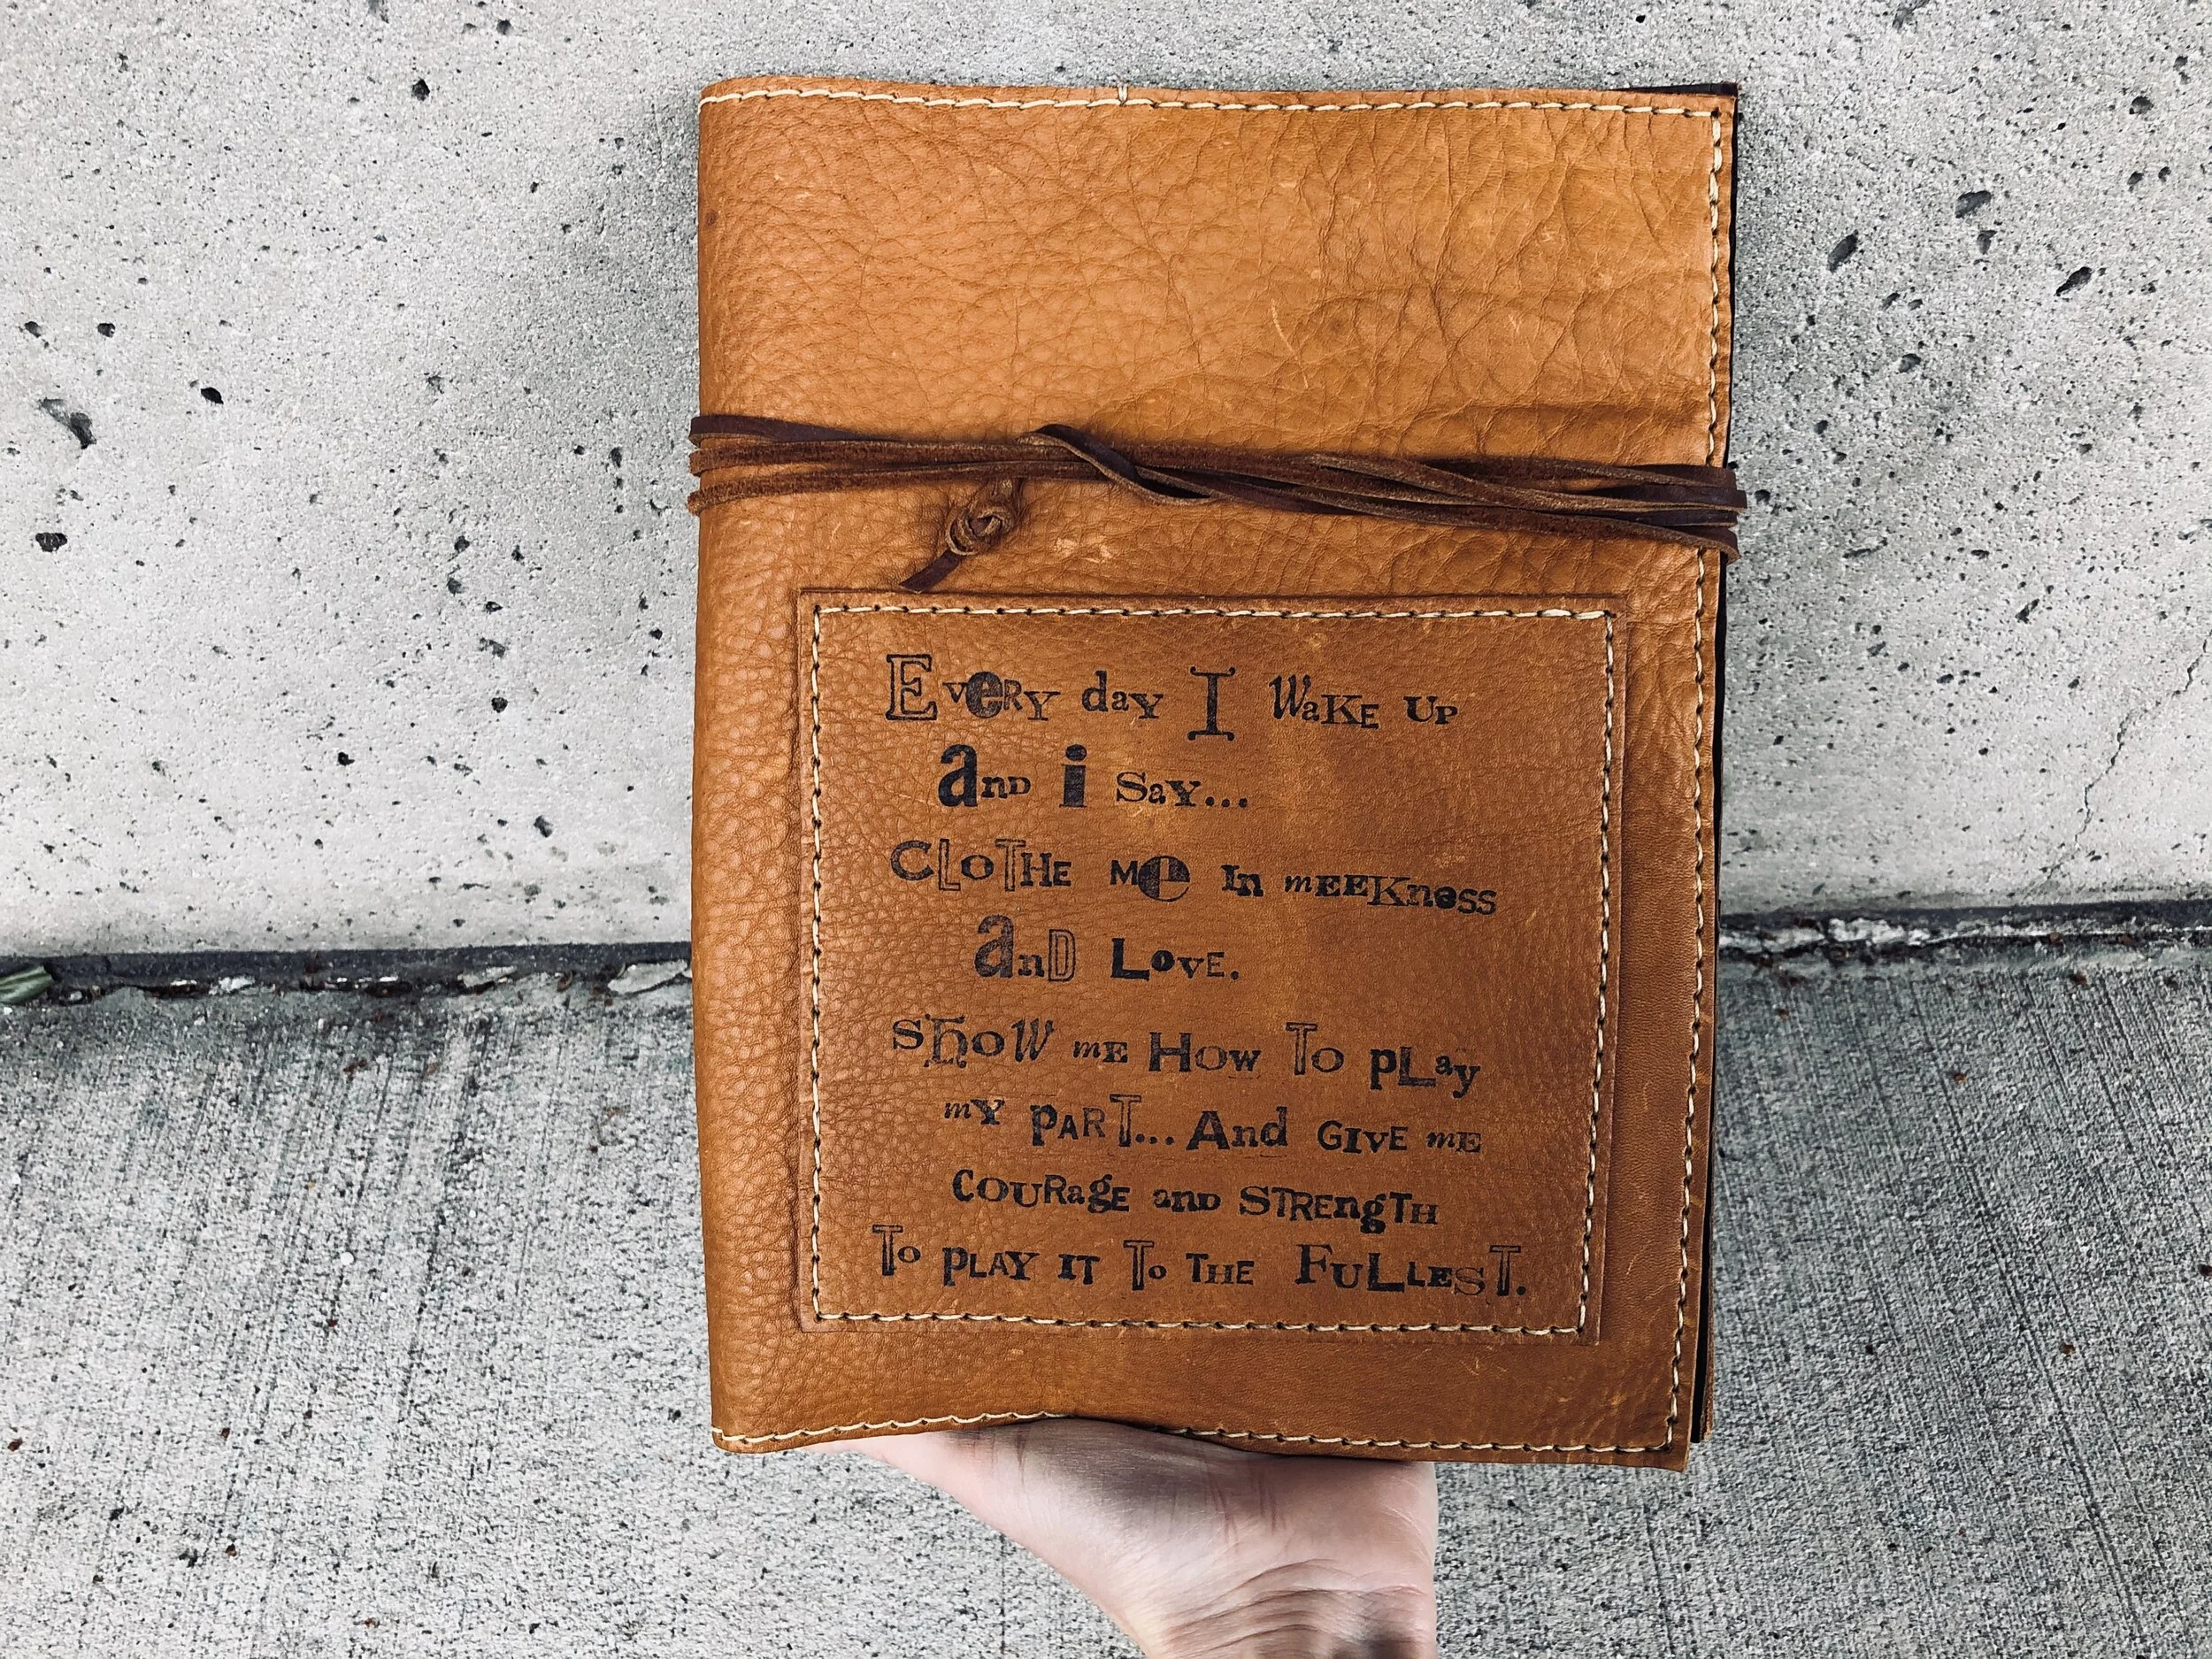 EveRY daY I WaKE UP
and i SaY...
CLOTHE Me In mEEKness
anD LOvE.
ShOW mE HOw TO pLay
mY PART... And GIvE mE
COURagE anD STREngTH
To PLAY IT To THE FULLEST.